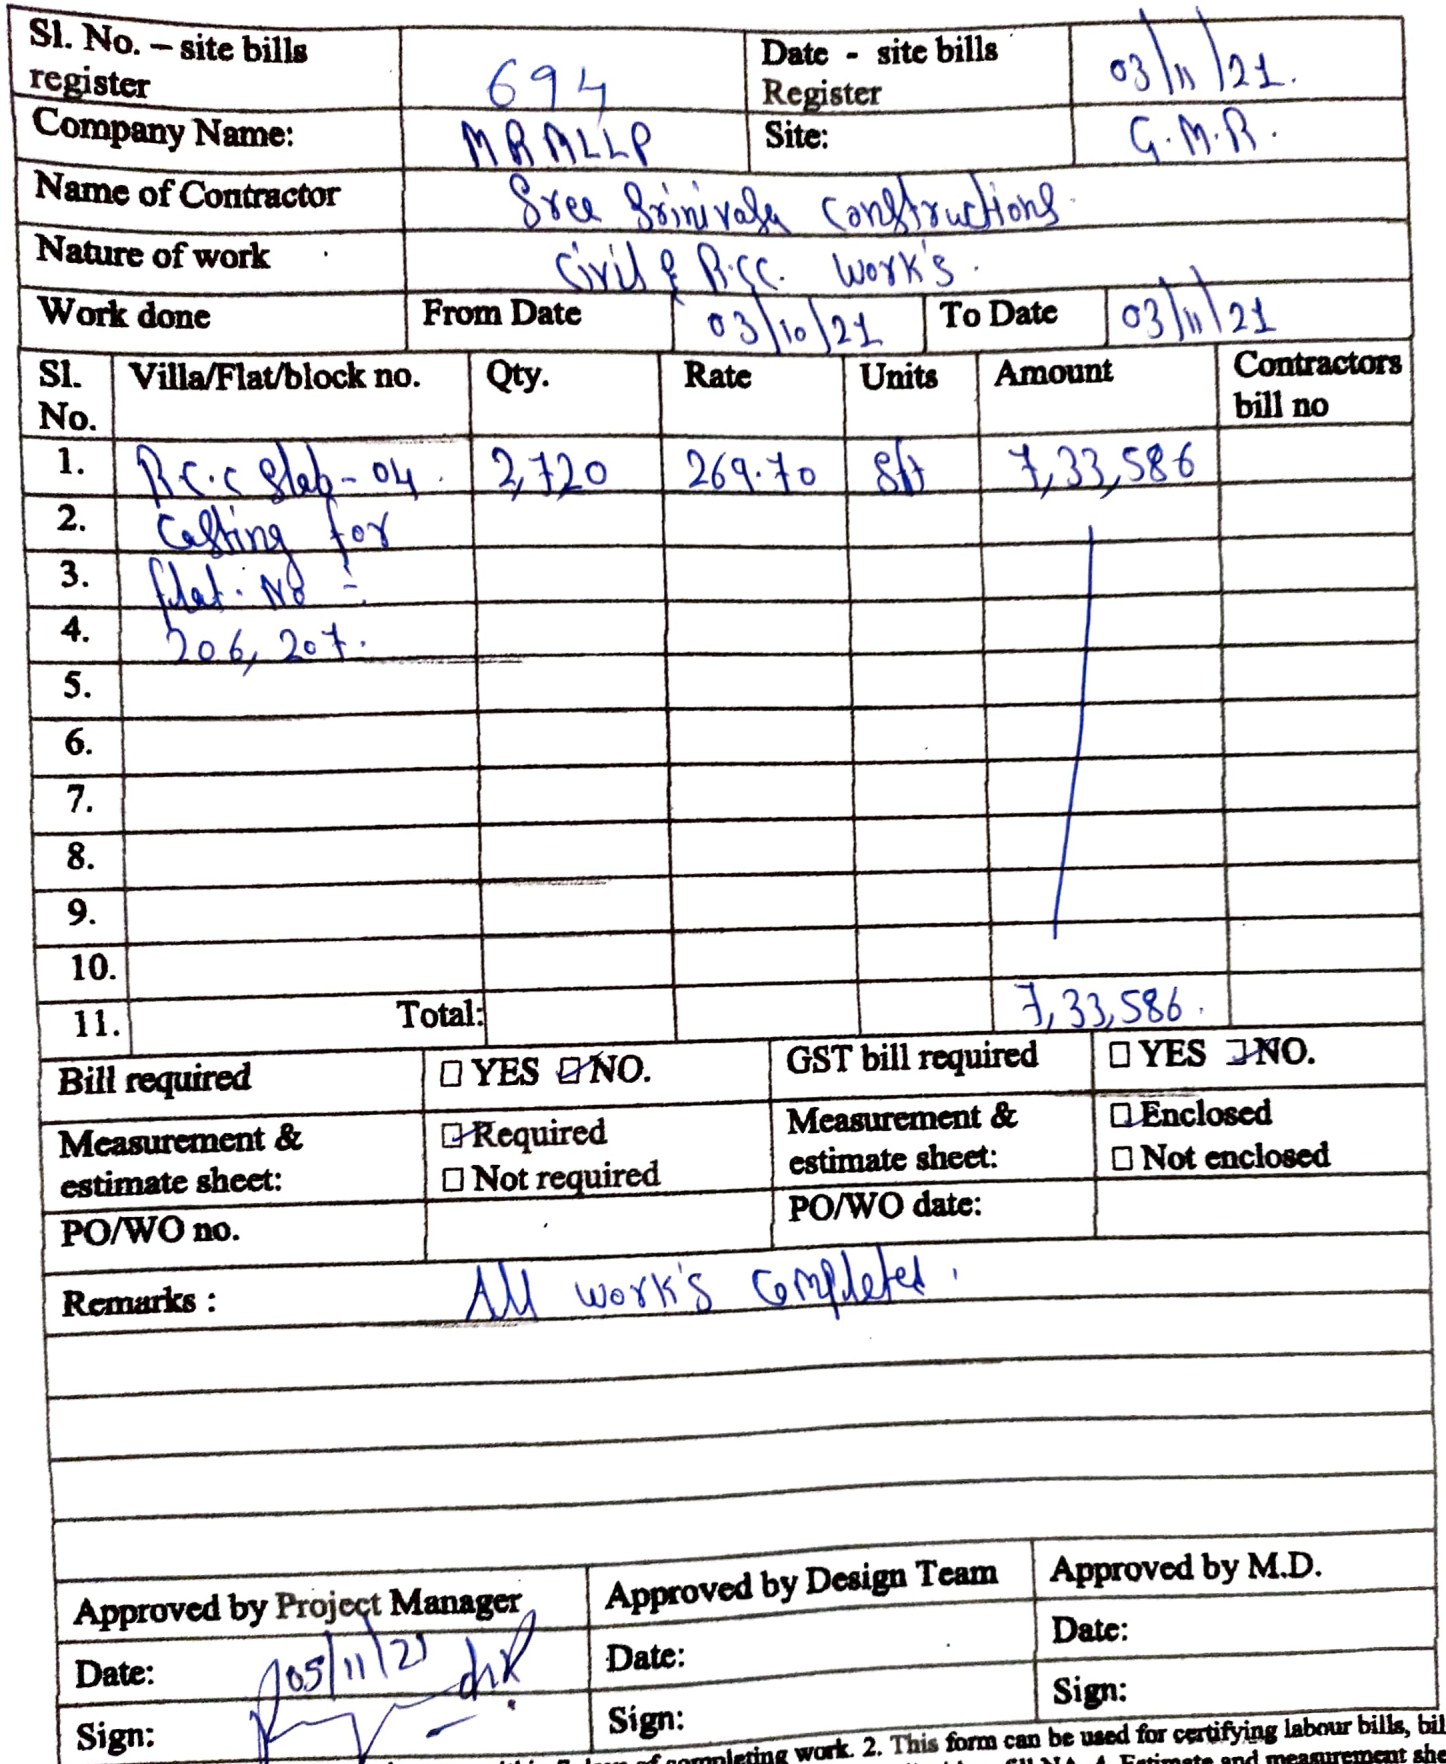 Sl. No. – site bills register 694 Date - site bills Register 03/11/21.
Company Name: MRMLLP Site: G.M.R.
Name of Contractor Sree Srinivasa Constructions.
Nature of work Civil & R.CC. Work's.
Work done From Date 03/10/21 To Date 03/11/21
Sl. No. Villa/Flat/block no. Qty. Rate Units Amount Contractors bill no
1. R.C.C Slab-04. 2,720 269.70 Sft 7,33,586
2. Casting for
3. flat. No :
4. 206, 207.
5.
6.
7.
8.
9.
10.
11. Total: 7,33,586.
Bill required ☐ YES ☑ NO. GST bill required ☐ YES ☑ NO.
Measurement & estimate sheet: ☑ Required ☐ Not required Measurement & estimate sheet: ☑ Enclosed ☐ Not enclosed
PO/WO no. PO/WO date:
Remarks : All work's Completed.
Approved by Project Manager Approved by Design Team Approved by M.D.
Date: 05/11/21 Date: Date:
Sign: Sign: Sign:
completing work. 2. This form can be used for certifying labour bills, bil
4. Estimate and measurement she